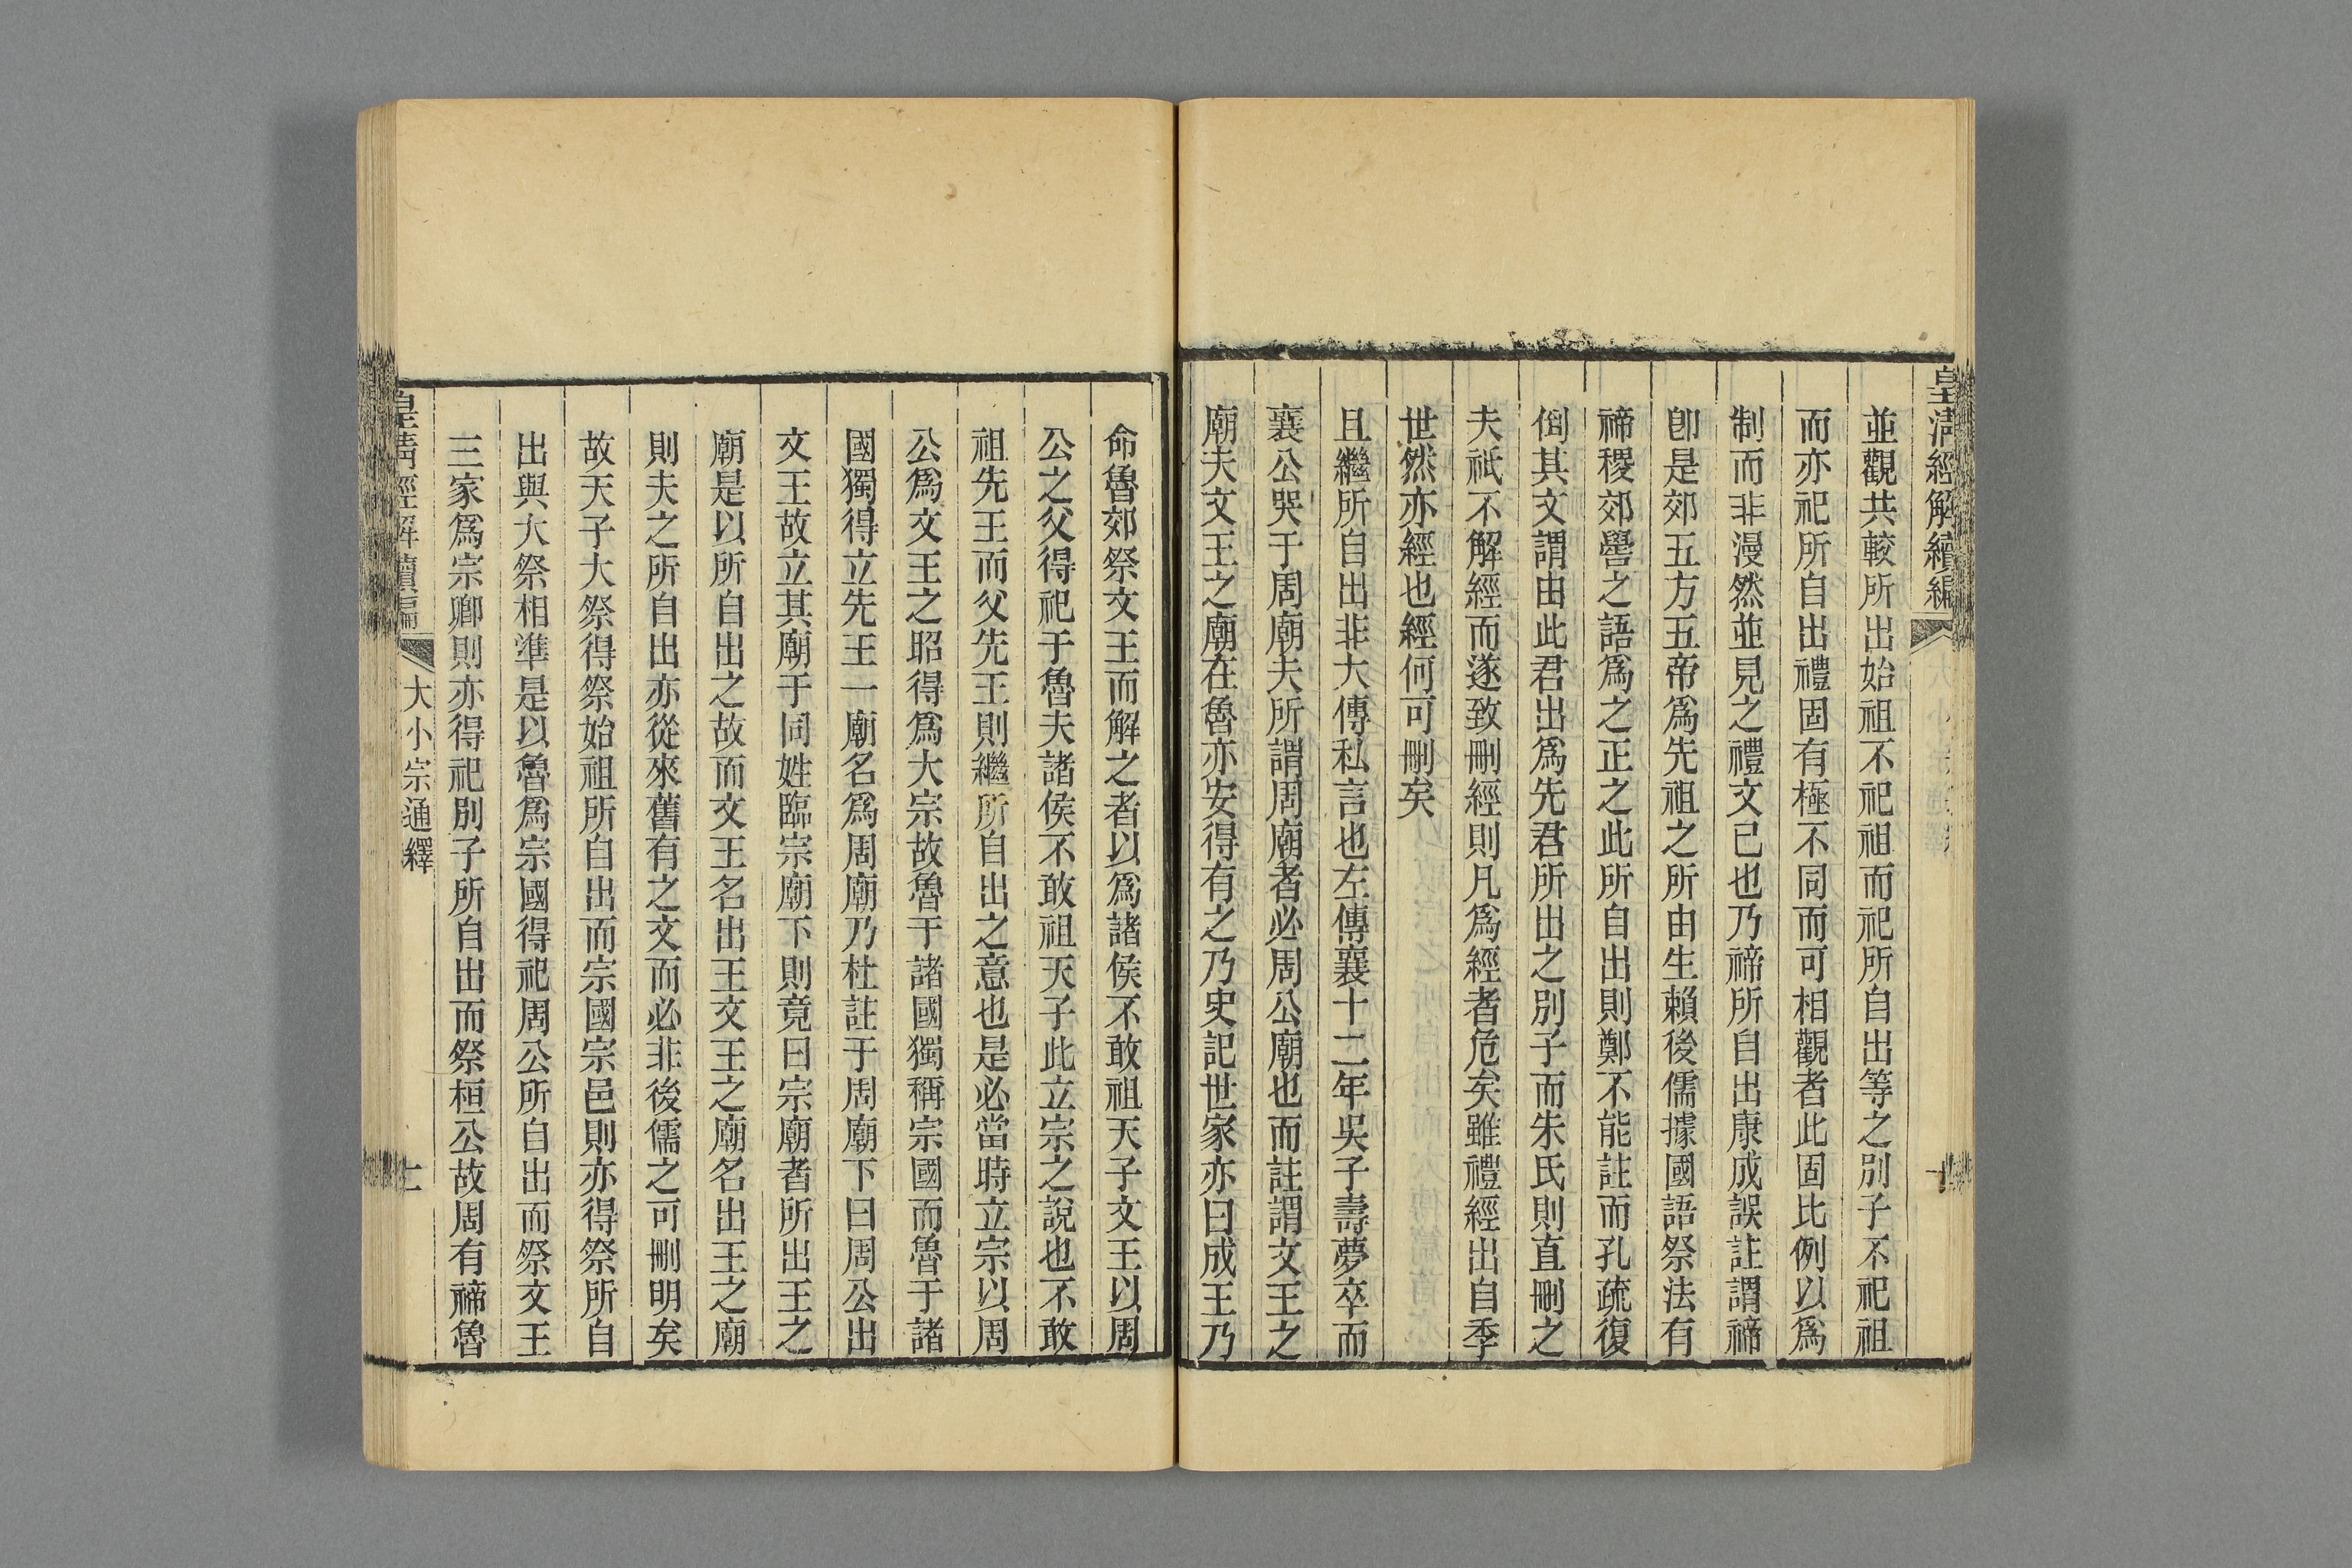 皇清經解續編
並觀共較所出始祖不祀祖而祀所自出等之別子不祀祖
而亦祀所自出禮固有極不同而可相觀者此固比例以爲
制而非漫然並見之禮文已也乃禘所自出康成誤註謂禘
卽是郊五方五帝爲先祖之所由生賴後儒據國語祭法有
禘稷郊嚳之語爲之正之此所自出則鄭不能註而孔疏復
倒其文謂由此君出爲先君所出之別子而朱氏則直刪之
夫祇不解經而遂致刪經則凡爲經者危矣雖禮經出自季
世然亦經也經何可刪矣
且繼所自出非大傳私言也左傳襄十二年吳子壽夢卒而
襄公哭于周廟夫所謂周廟者必周公廟也而註謂文王之
廟夫文王之廟在魯亦安得有之乃史記世家亦曰成王乃
命魯郊祭文王而解之者以爲諸侯不敢祖天子文王以周
公之父得祀于魯夫諸侯不敢祖天子此立宗之說也不敢
祖先王而父先王則繼所自出之意也是必當時立宗以周
公爲文王之昭得爲大宗故魯于諸國獨稱宗國而魯于諸
國獨得立先王一廟名爲周廟乃杜註于周廟下曰周公出
文王故立其廟于同姓臨宗廟下則竟曰宗廟者所出王之
廟是以所自出之故而文王名出王文王之廟名出王之廟
則夫之所自出亦從來舊有之文而必非後儒之可刪明矣
故天子大祭得祭始祖所自出而宗國宗邑則亦得祭所自
出與大祭相準是以魯爲宗國得祀周公所自出而祭文王
三家爲宗卿則亦得祀別子所自出而祭桓公故周有禘魯
皇清經解續編
大小宗通繹